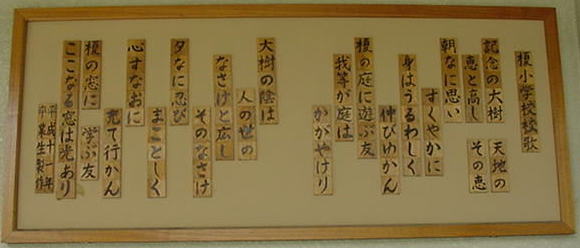 榎小学校校歌
記念の大樹 天地の
恵と高し その恵
朝なに思い
すくやかに
身はうるわしく
伸びゆかん
榎の庭に遊ぶ友
我等が庭は
かがやけり
大樹の陰は
人の世の
なさけと広し
そのなさけ
夕なに忍び
まことしく
心すなおに
充て行かん
榎の窓に 学ぶ友
ここなる窓は光あり
平成十一年
卒業生製作